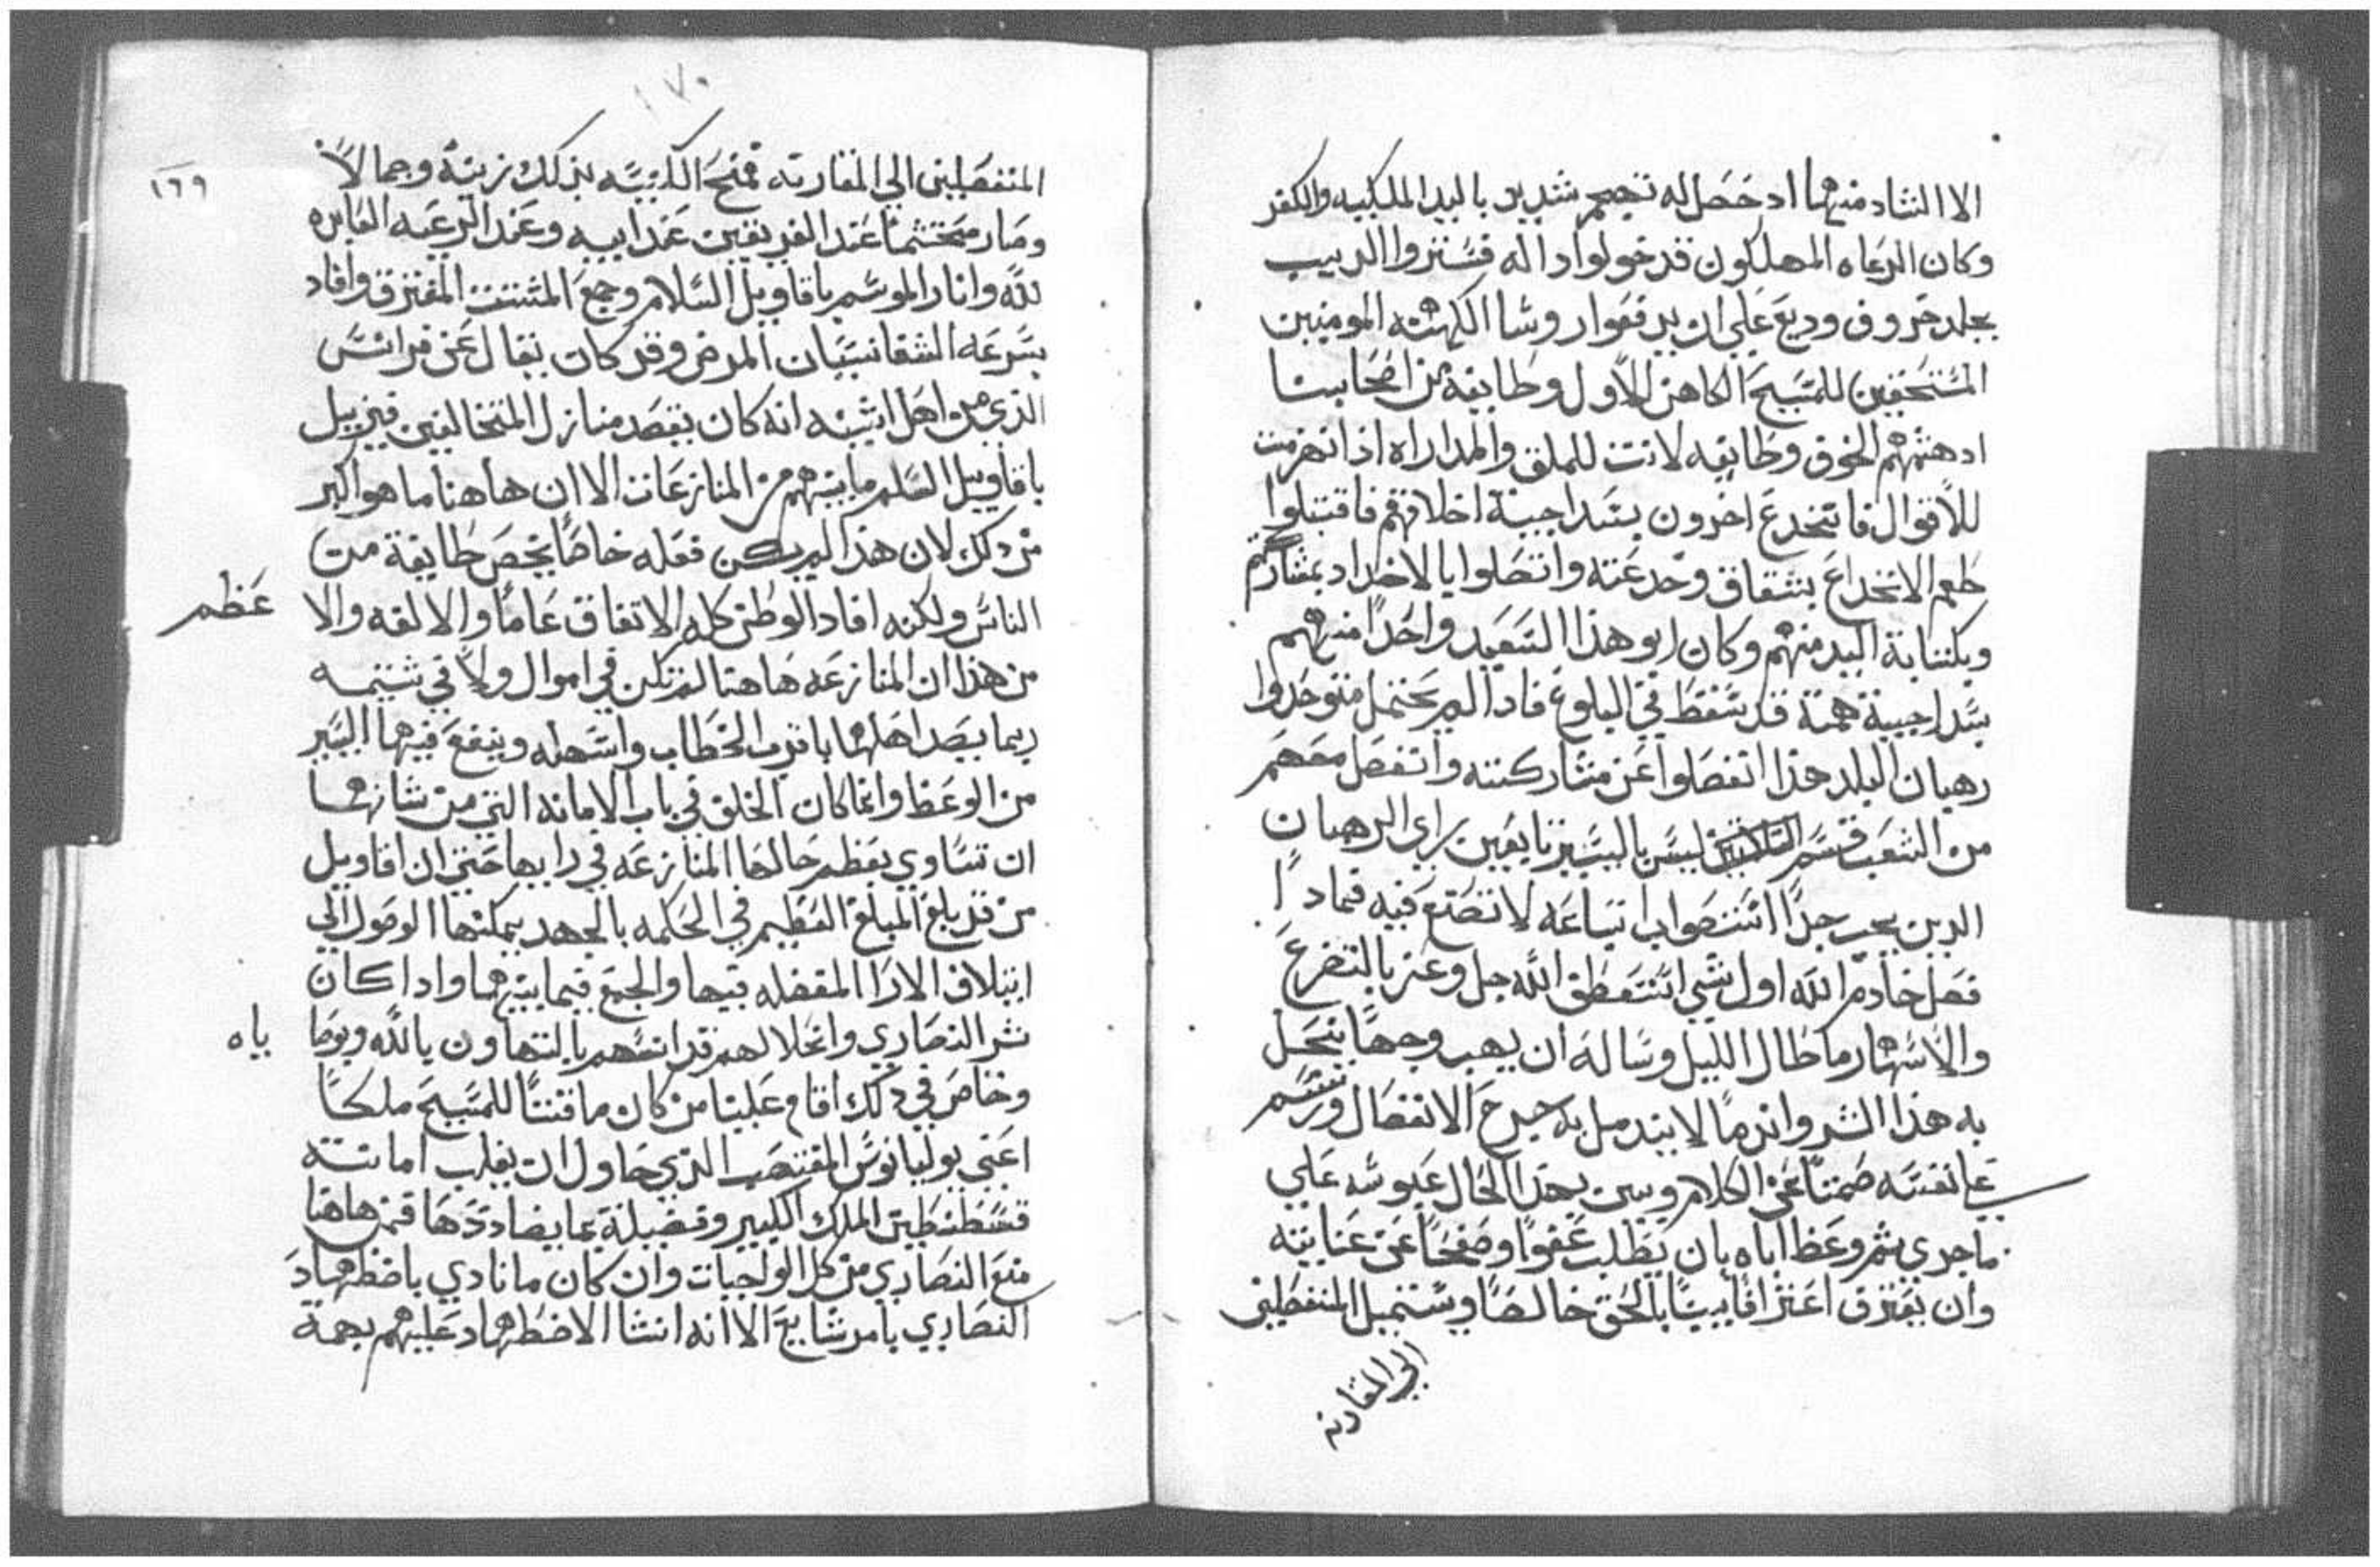 الا الشاد منهما اد حصل له تجمع شديد باليد الملكيه والكفر
وكان الرعاه المهلكون قد خولوا اداله فتستروا الديب
بجلد خروف وديع علي ان يدفعوا روسا الكهنه المومنين
المستحقين للمسيح الكاهن الاول وطايفه من اصحابنا
ادهشهم الخوف وطايفه لانت للملق والمداراه اذا نهزمت
للاقوال فانخدع اخرون بسداجية اخلاقهم فاقتبلوا
طعم الانخداع بشقاق وخدعته واتصلوا بالاضداد بمشاركتهم
وبكتابة اليد منهم وكان ابو هذا السعيد واحدًا منهم
بسداجيية همته قد سقط في البلوغ فادا لم يحتمل متوحدوا
رهبان البلد هذا انفصلوا عن مشاركته وانفصل معهم
من الشعب قسم ليس باليسير تابعين براي الرهبان
الدين يجب جدًا اتساعه لا تصنع فيه فمادا
فصل خادم الله اول شي استعطف الله جل وعز بالتضرع
والاسهار ما طال الليل وساله ان يهب وجهًا ينحل
به هذا الشر واندمالا يندمل به جرح الانفصال ورسم
علي نفسه صمتًا عن الكلام وبين بهذا الحال عبوسه علي
ما جري ثم وعظ اباه بان يطلب عفوًا وصفحًا عن عنايته
وان يعترف اعترافا بينًا بالحق خالصًا ويستميل المنفصلين
الي المقارنه
١٧٠
١٦٩
المنفصلين الي المقارنه فمنح الكنيسه بذلك زينة وجمالاً
وصار محتشمًا عند الفريقين عند ابيه وعند الرعيه العابره
لله وانار الموسم باقاويل السلام وجمع المشتت المفترق وافاد
بسرعه الشفا نسيان المرض وقد كان يقال عن فرانس
الذي من اهل اثينه انه كان يقصد منازل المتخالفين فيزيل
باقاويل السلم ما بينهم من المنازعات الا ان هاهنا ما هو اكبر
من دلك لان هذا لم يكن فعله خاصًا يخص طايفة من
الناس ولكنه افاد الوطن كله الاتفاق عامًا والالفه والا عظم
من هذا ان المنازعه هاهنا لم تكن في اموال ولا في شتيمه
ربما يصد اهلها باقرب الخطاب واسهله وينفع فيها اليسير
من الوعظ وانما كان الخلف في باب الامانه التي من شانها
ان تساوي بعظم حالها المنازعه في رايها حتي ان اقاويل
من قد بلغ المبلغ العظيم في الحكمه بالجهد يمكنها الوصول الي
ايتلاف الارا المفضله فيها والجمع فيما بينهما وادا كان
شر النصاري وانحلالهم قد اتهم بالتهاون بالله وبوصاياه
وخاض في دلك اقام علينا من كان ماقتًا للمسيح ملكًا
اعني يوليانوس المغتصب الذي حاول ان يغلب امانة
قسطنطين الملك الكبير وفضيلة بما يضاددها فمن هاهنا
منع النصاري من كل الواجبات وان كان ما نادي باضطهاد
النصاري بامر شايع الا انه انشا الاضطهاد عليهم بهمة